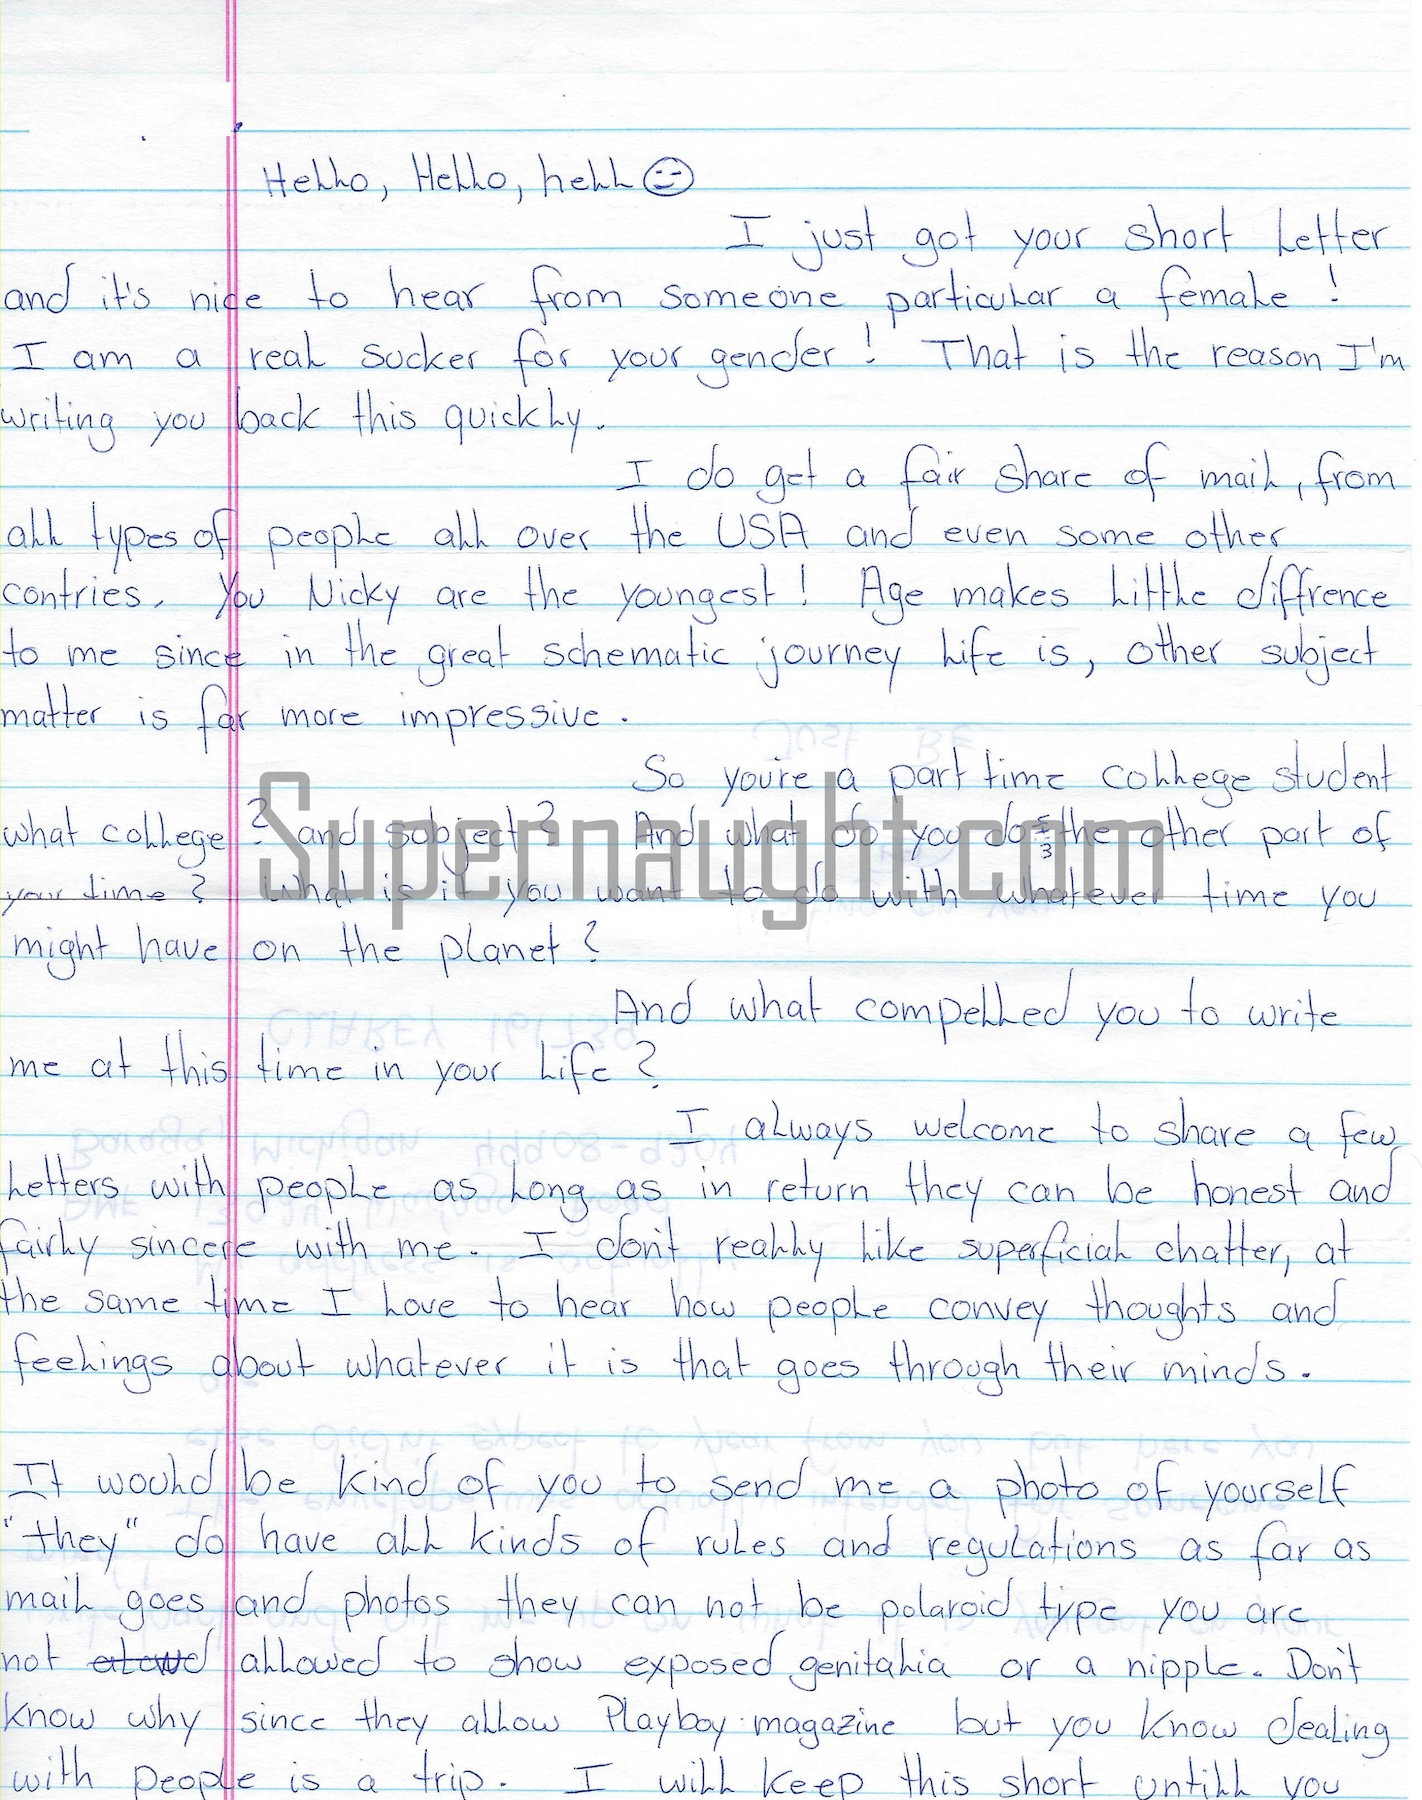 Hello, Hello, hell
I just got your short letter
and it's nice to hear from someone particular a female!
I am a real sucker for your gender! That is the reason I'm
writing you back this quickly.
I do get a fair share of mail, from
all types of people all over the USA and even some other
contries. You Nicky are the youngest! Age makes little diffrence
to me since in the great schematic journey life is, other subject
matter is far more impressive.
So you're a part time college student
what college? and subject? And what do you do the other part of
your time? What is it you want to do with whatever time you
might have on the planet?
And what compelled you to write
me at this time in your life?
I always welcome to share a few
letters with people as long as in return they can be honest and
fairly sincere with me. I don't really like superficial chatter, at
the same time I love to hear how people convey thoughts and
feelings about whatever it is that goes through their minds.
It would be kind of you to send me a photo of yourself
"they" do have all kinds of rules and regulations as far as
mail goes and photos they can not be polaroid type you are
not allowed to show exposed genitalia or a nipple. Don't
know why since they allow Playboy magazine but you know dealing
with people is a trip. I will keep this short untill you
Supernaught.com